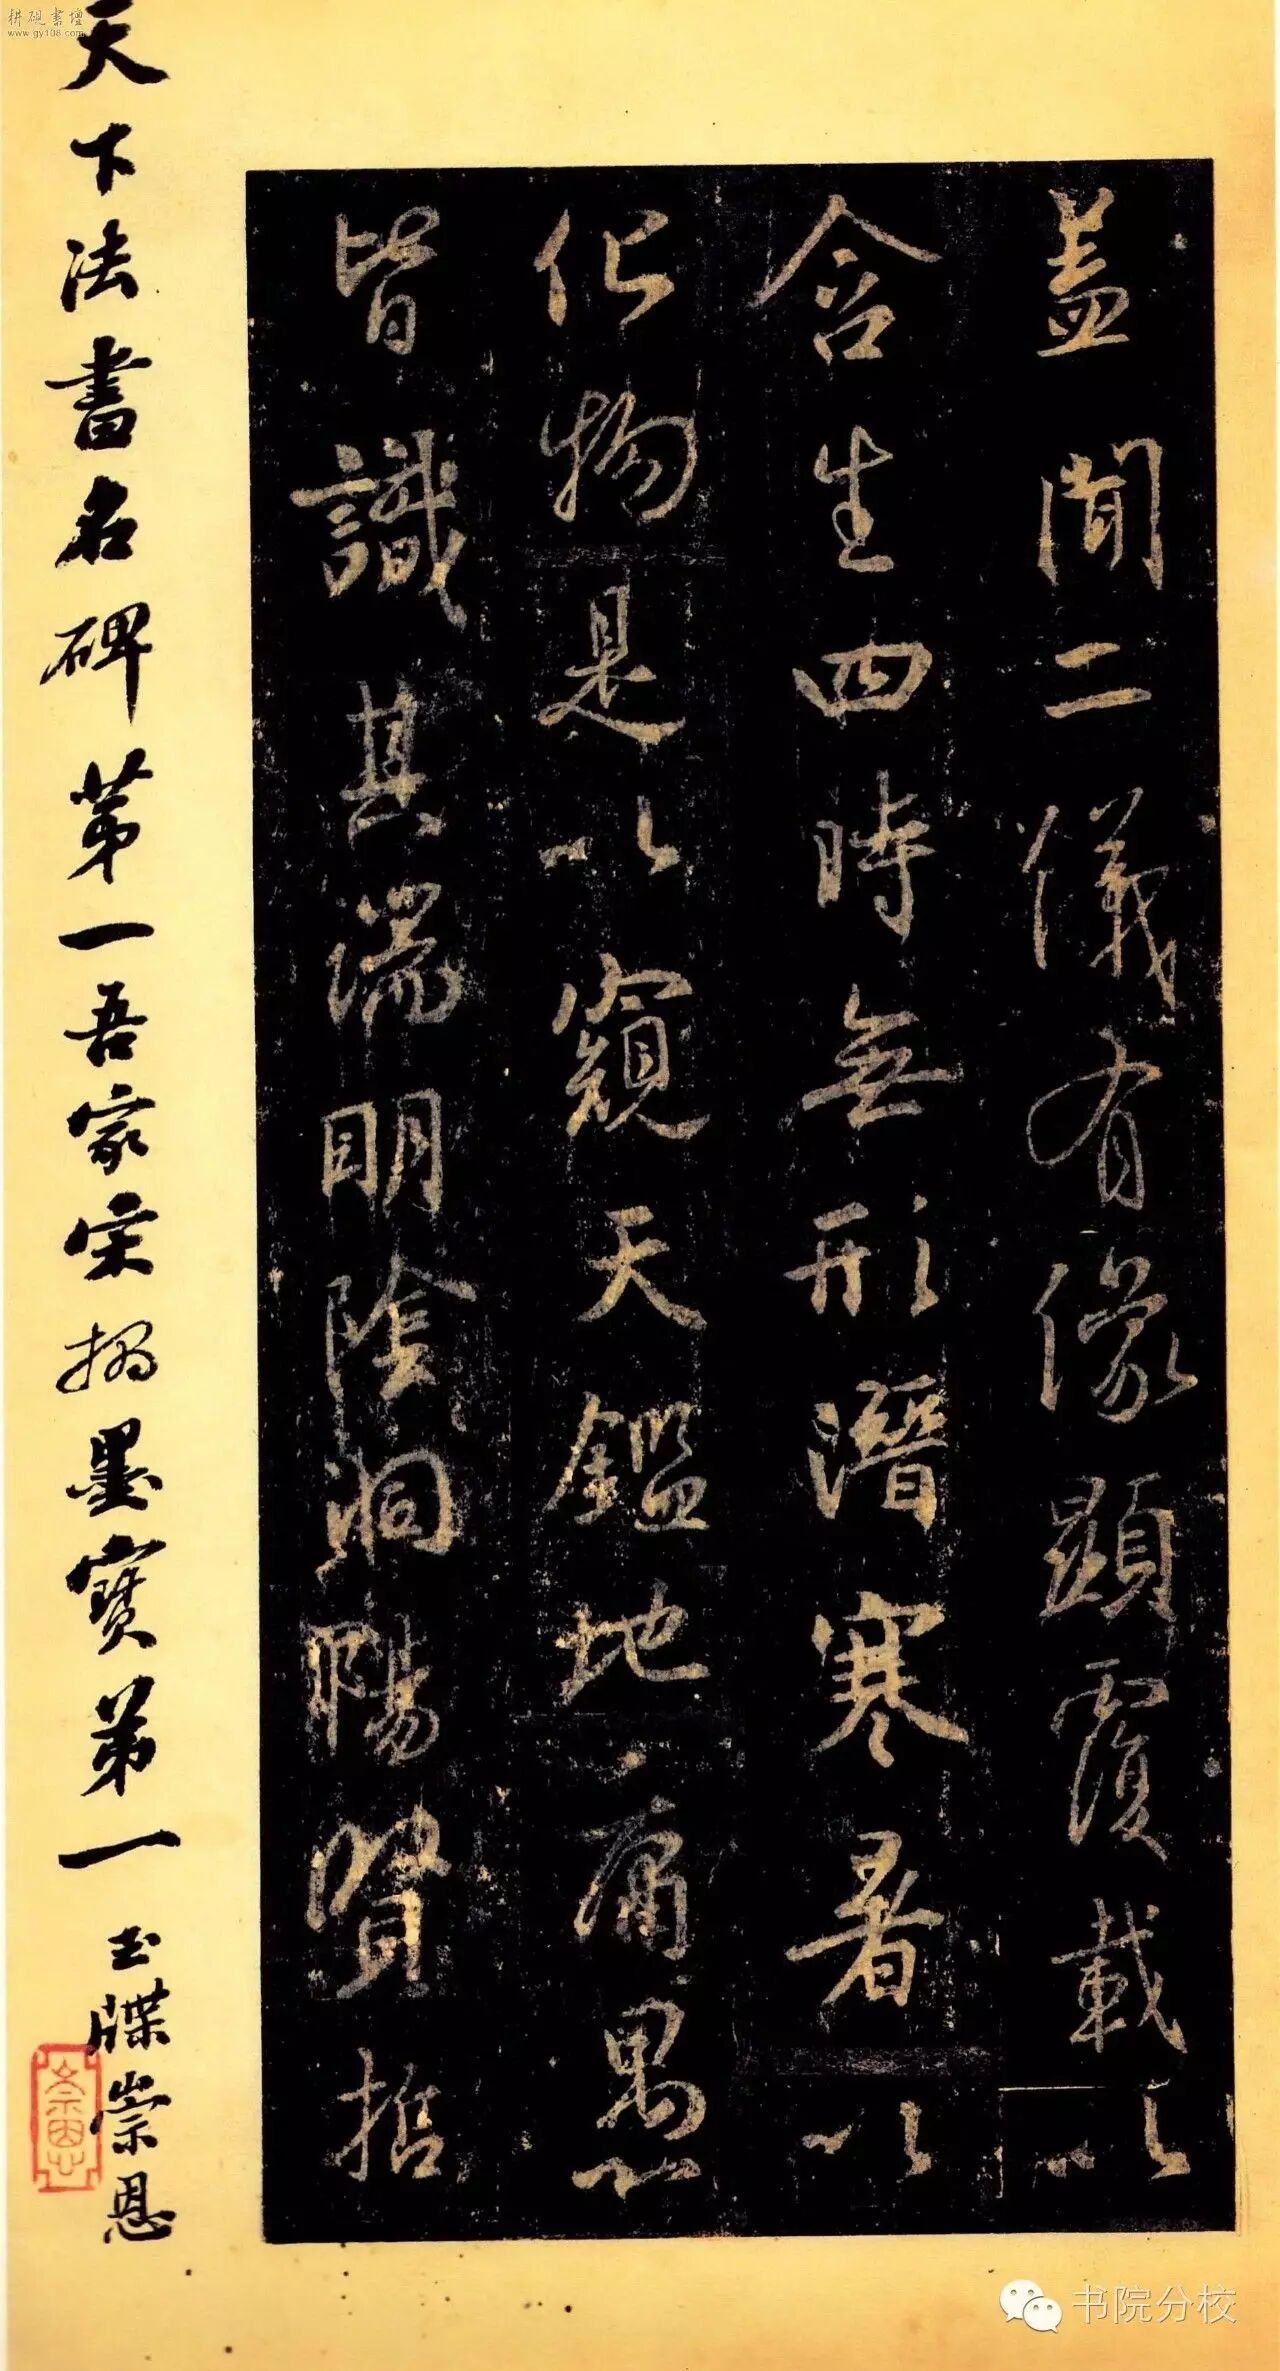 蓋聞二儀有像顯覆載以
含生四時無形潛寒暑以
化物是以窺天鑑地庸愚
皆識其端明陰洞陽賢哲
天下法書名碑第一吾家宋搨墨寶第一
玉牒崇恩
崇恩
耕硯書壇
www.gy108.com
书院分校